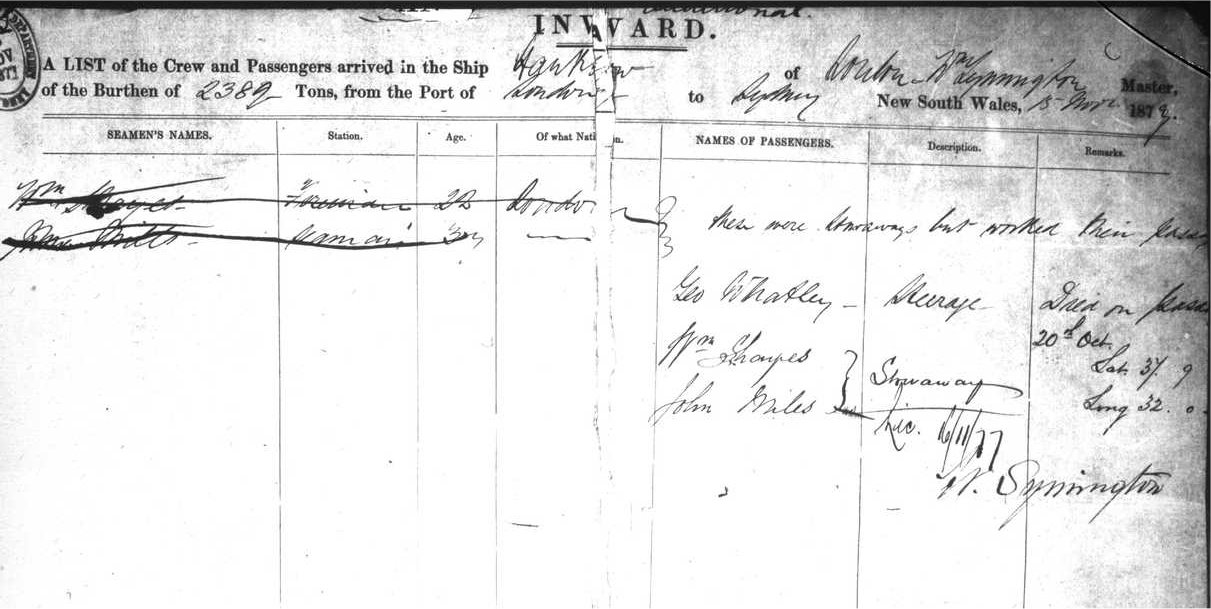 INWARD.
A LIST of the Crew and Passengers arrived in the Ship Hankow of London Wm Symington Master,
of the Burthen of 2389 Tons, from the Port of London to Sydney New South Wales, 15 Novr 1877.
SEAMEN'S NAMES. Station. Age. Of what Nation. NAMES OF PASSENGERS. Description. Remarks.
Wm Sharpes Fireman 22 London
John Miles
these were stowaways but worked their passa
Geo Whatley - Steerage Died on passa
20th Oct.
Wm Sharpes Lat. 37. 9
John Miles Stowaway Long 32. 0
16/11/77
W. Symington